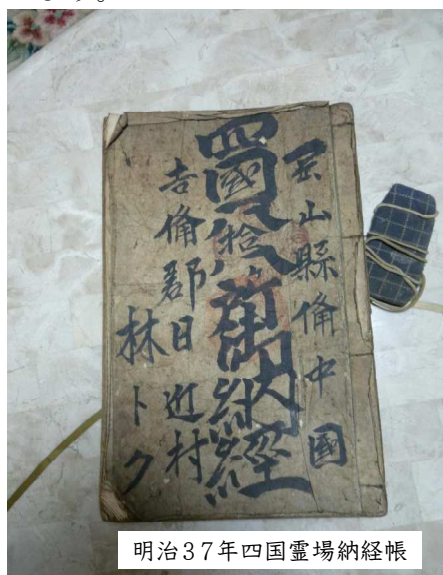 岡山縣備中國
四國八拾八納經
吉備郡日近村
林トク
明治37年四国霊場納経帳